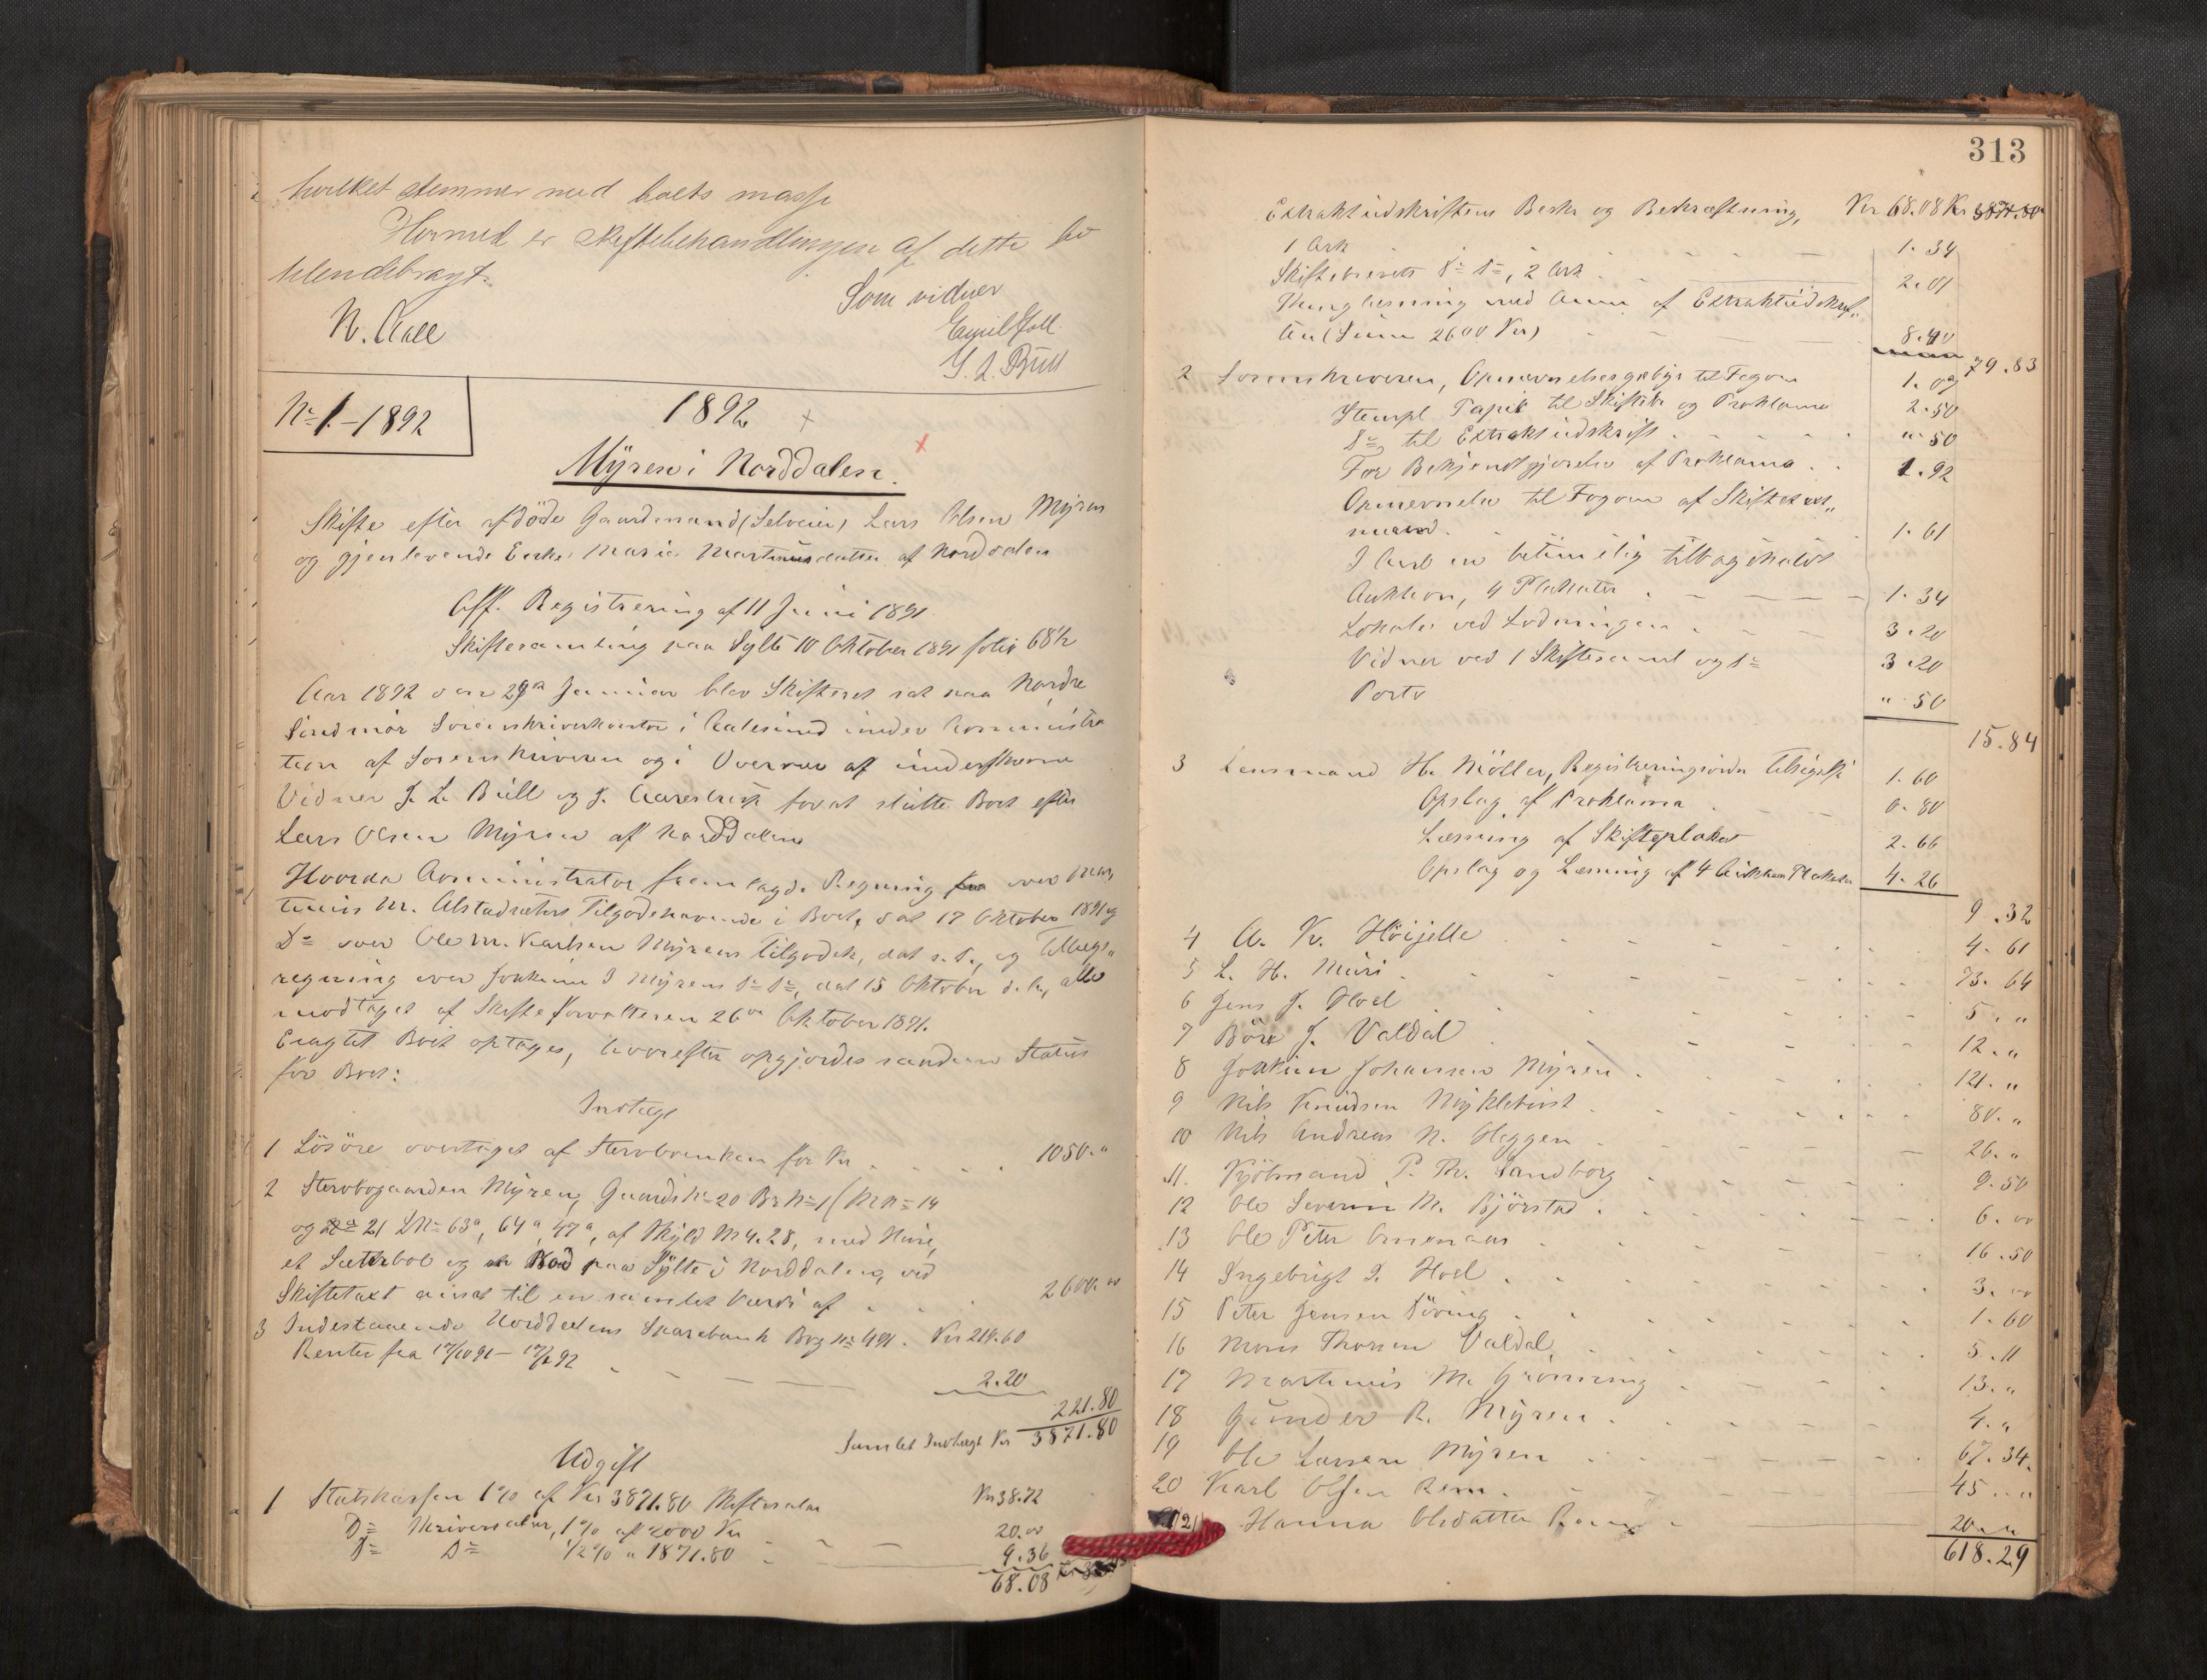 hvilket stemmer med boets masse
Hermed er skiftebehandlingen af dette bo
tilendebragt.
N. Aall
Som vidner
Emil Joll
J. L. Bull
No 1 - 1892
1892
Mÿren i Norddalen.
Skifte efter afdöde Gaardmand (Selveier) Lars Olsen Mÿren
og gjenlevende Enke Marie Martinusdatter af Norddalen
Aff. Registrering af 11 Juni 1891.
Skiftesamling paa Sylte 10 Oktober 1891 folio 68 1/2
Aar 1892 den 29de Januar blev Skifteret sat paa Nordre
Söndmör Sorenskriverkontor i Aalesund under Administra
tion af Sorenskriveren og i Overvær af underskrevne
Vidner J. L. Bull og J. Aarestrup for at slutte Boet efter
Lars Olsen Mÿren af Norddalen
Hvorda Administrator fremlagde Regning over Mar
tinus M. Alstadsæters Tilgodehavende i Boet, dat 17 Oktober 1891 og
Do over Ole M. Karlsen Mÿrens Tilgodeh, dat s. D., og Tillægs„
regning over Joakim J Mÿrens Do Do, dat 15 Oktober d. A., alle
modtaget af Skifteforvalteren 26de Oktober 1891.
Eragtet Boet optages, hvorefter opgjordes saadan Status
for Boet:
Indtægt
1 Lösöre overtaget af Stervboenken for Kr . . . . 1050. „
2 Stervbogaarden Mÿren, Gaards No 20 Br No 1 (M No 14
og 21 L No 63a, 64a, 47a, af Skyld M 4.28, med Huse,
et Sæterbol og Nöd paa Sylte i Norddalen, ved
Skiftetaxt ansat til en samlet Værdi af . . . 2600. 00
3 Indestaaende Norddalens Sparebank Bog No 491. Kr 219.60
Renter fra 17/10 91 - 17/1 92 - - - 2.20
221.80
Samlet Indtægt Kr 3871.80
Udgift
1 Statskassen 1% af Kr 3871.80 Skiftesalær Kr 38.72
Do Skriversalær, 1% af 2000 Kr - - - 20.00
Do Do 1/2% „ 1871.80 - 9.36
68.08
313
Extraktudskriftens Beskr og Bekræftning, Kr 68.08 Kr 3871.80
1 Ark - - - - 1. 34
Skiftebrevets Do Do, 2 Ark . . 2. 01
Thinglæsning med Anm af Extraktudskrif„
ten (Sum 2600 Kr) - - - 8. 40
79.83
2 Sorenskriveren, Opnævnelsesgebyr til Fogden 1. 07
Stempl Papir til Skiftebr og Proklama 2. 50
Do til Extraktudskrift . . . . „ 50
For Bekjendtgjørelse af Proklama . . 1. 92
Opnævnelse til Fogden af Skiftetaxt„
mænd. . . 1. 61
I Anl en betimelig tilbagekaldt
Auktion, 4 Plakater . - - - 1. 34
Lokale ved Lodningen . - - - 3. 20
Vidner ved 1 Skiftesaml og Do 3. 20
Porto „ 50
15.84
3 Lensmand H. Möller, Registreringsvidn tilsigelse 1. 60
Opslag af Proklama . . 0. 80
Læsning af Skifteplakat 2. 66
Opslag og Læsning af 4 Auktions Plakater 4. 26
9. 32
4 A. K. Höijelle 4. 61
5 L. H. Muri 73. 64
6 Jens J. Hoel 5. „
7 Böre J. Valdal 12. „
8 Joakim Johansen Mÿren 121. „
9 Nils Knudsen Mÿklebust 80. „
10 Nils Andreas N. Heggen 26. „
11. Kjöbmand P. Th. Sandborg 9. 50
12 Ole Severin M. Bjørstad 6. 00
13 Ole Peter 16. 50
14 Ingebrigt I. Hoel 3. 00
15 Peter Jensen Döving 1. 60
16 Mons Thorsen Valdal 5. 11
17 Martinus M. Grönning 13. „
18 Gunder R. Mÿren 4. „
19 Ole Larsen Mÿren 67. 34
20 Karl Olsen Rem 45. „
21 Hanna Olsdatter Rem 20. „
618.29